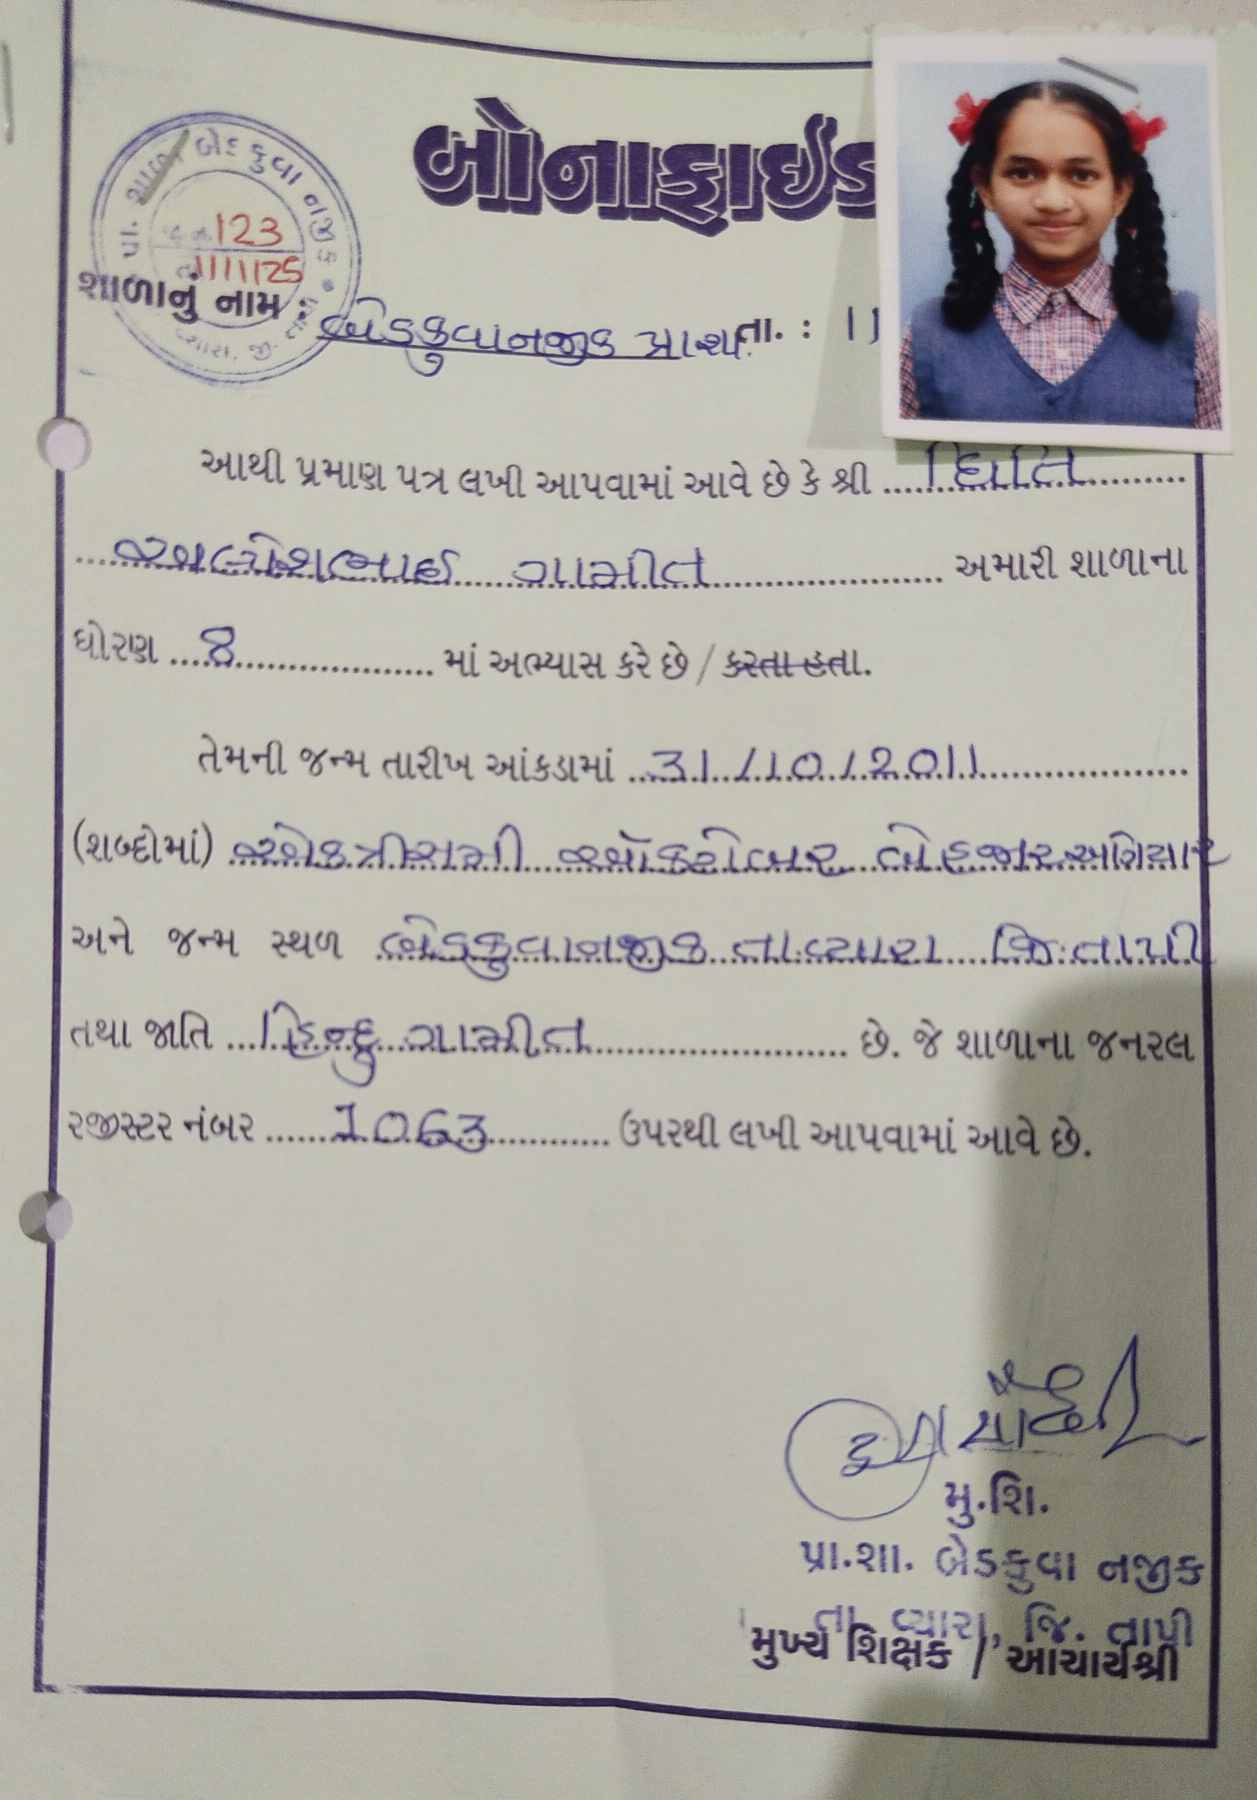 બોનાફાઈડ
પ્રા. શાળા બેડકુવા નજીક
જા.નં. 123
તા. 1/11/25
શાળાનું નામ : બેડકુવાનજીક પ્રાશા. તા. : 1)
આથી પ્રમાણ પત્ર લખી આપવામાં આવે છે કે શ્રી
ગામીત અમારી શાળાના
ધોરણ 8 માં અભ્યાસ કરે છે / કરતા હતા.
તેમની જન્મ તારીખ આંકડામાં 31/10/2011
(શબ્દોમાં) એકત્રીસમી ઓકટોબર બેહજાર અગિયાર
અને જન્મ સ્થળ બેડકુવાનજીક તા.વ્યારા જિ.તાપી
તથા જાતિ હિન્દુ ગામીત છે. જે શાળાના જનરલ
રજીસ્ટર નંબર 1063 ઉપરથી લખી આપવામાં આવે છે.
મુ.શિ.
પ્રા.શા. બેડકુવા નજીક
તા વ્યારા, જિ. તાપી
મુખ્ય શિક્ષક / આચાર્યશ્રી